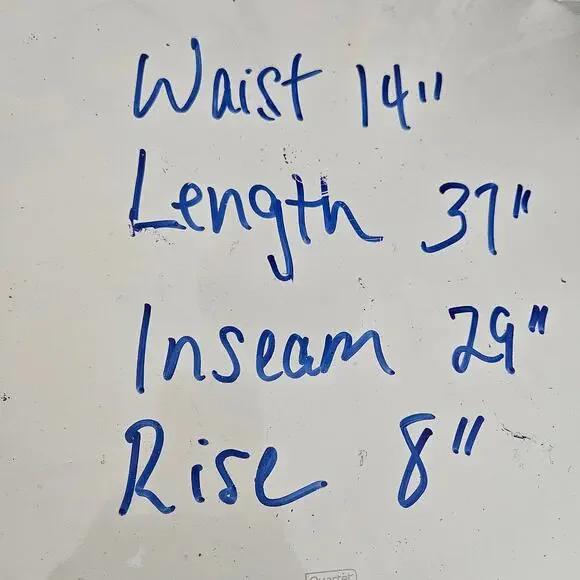 Waist 14"
Length 37"
Inseam 29"
Rise 8"
Quartet